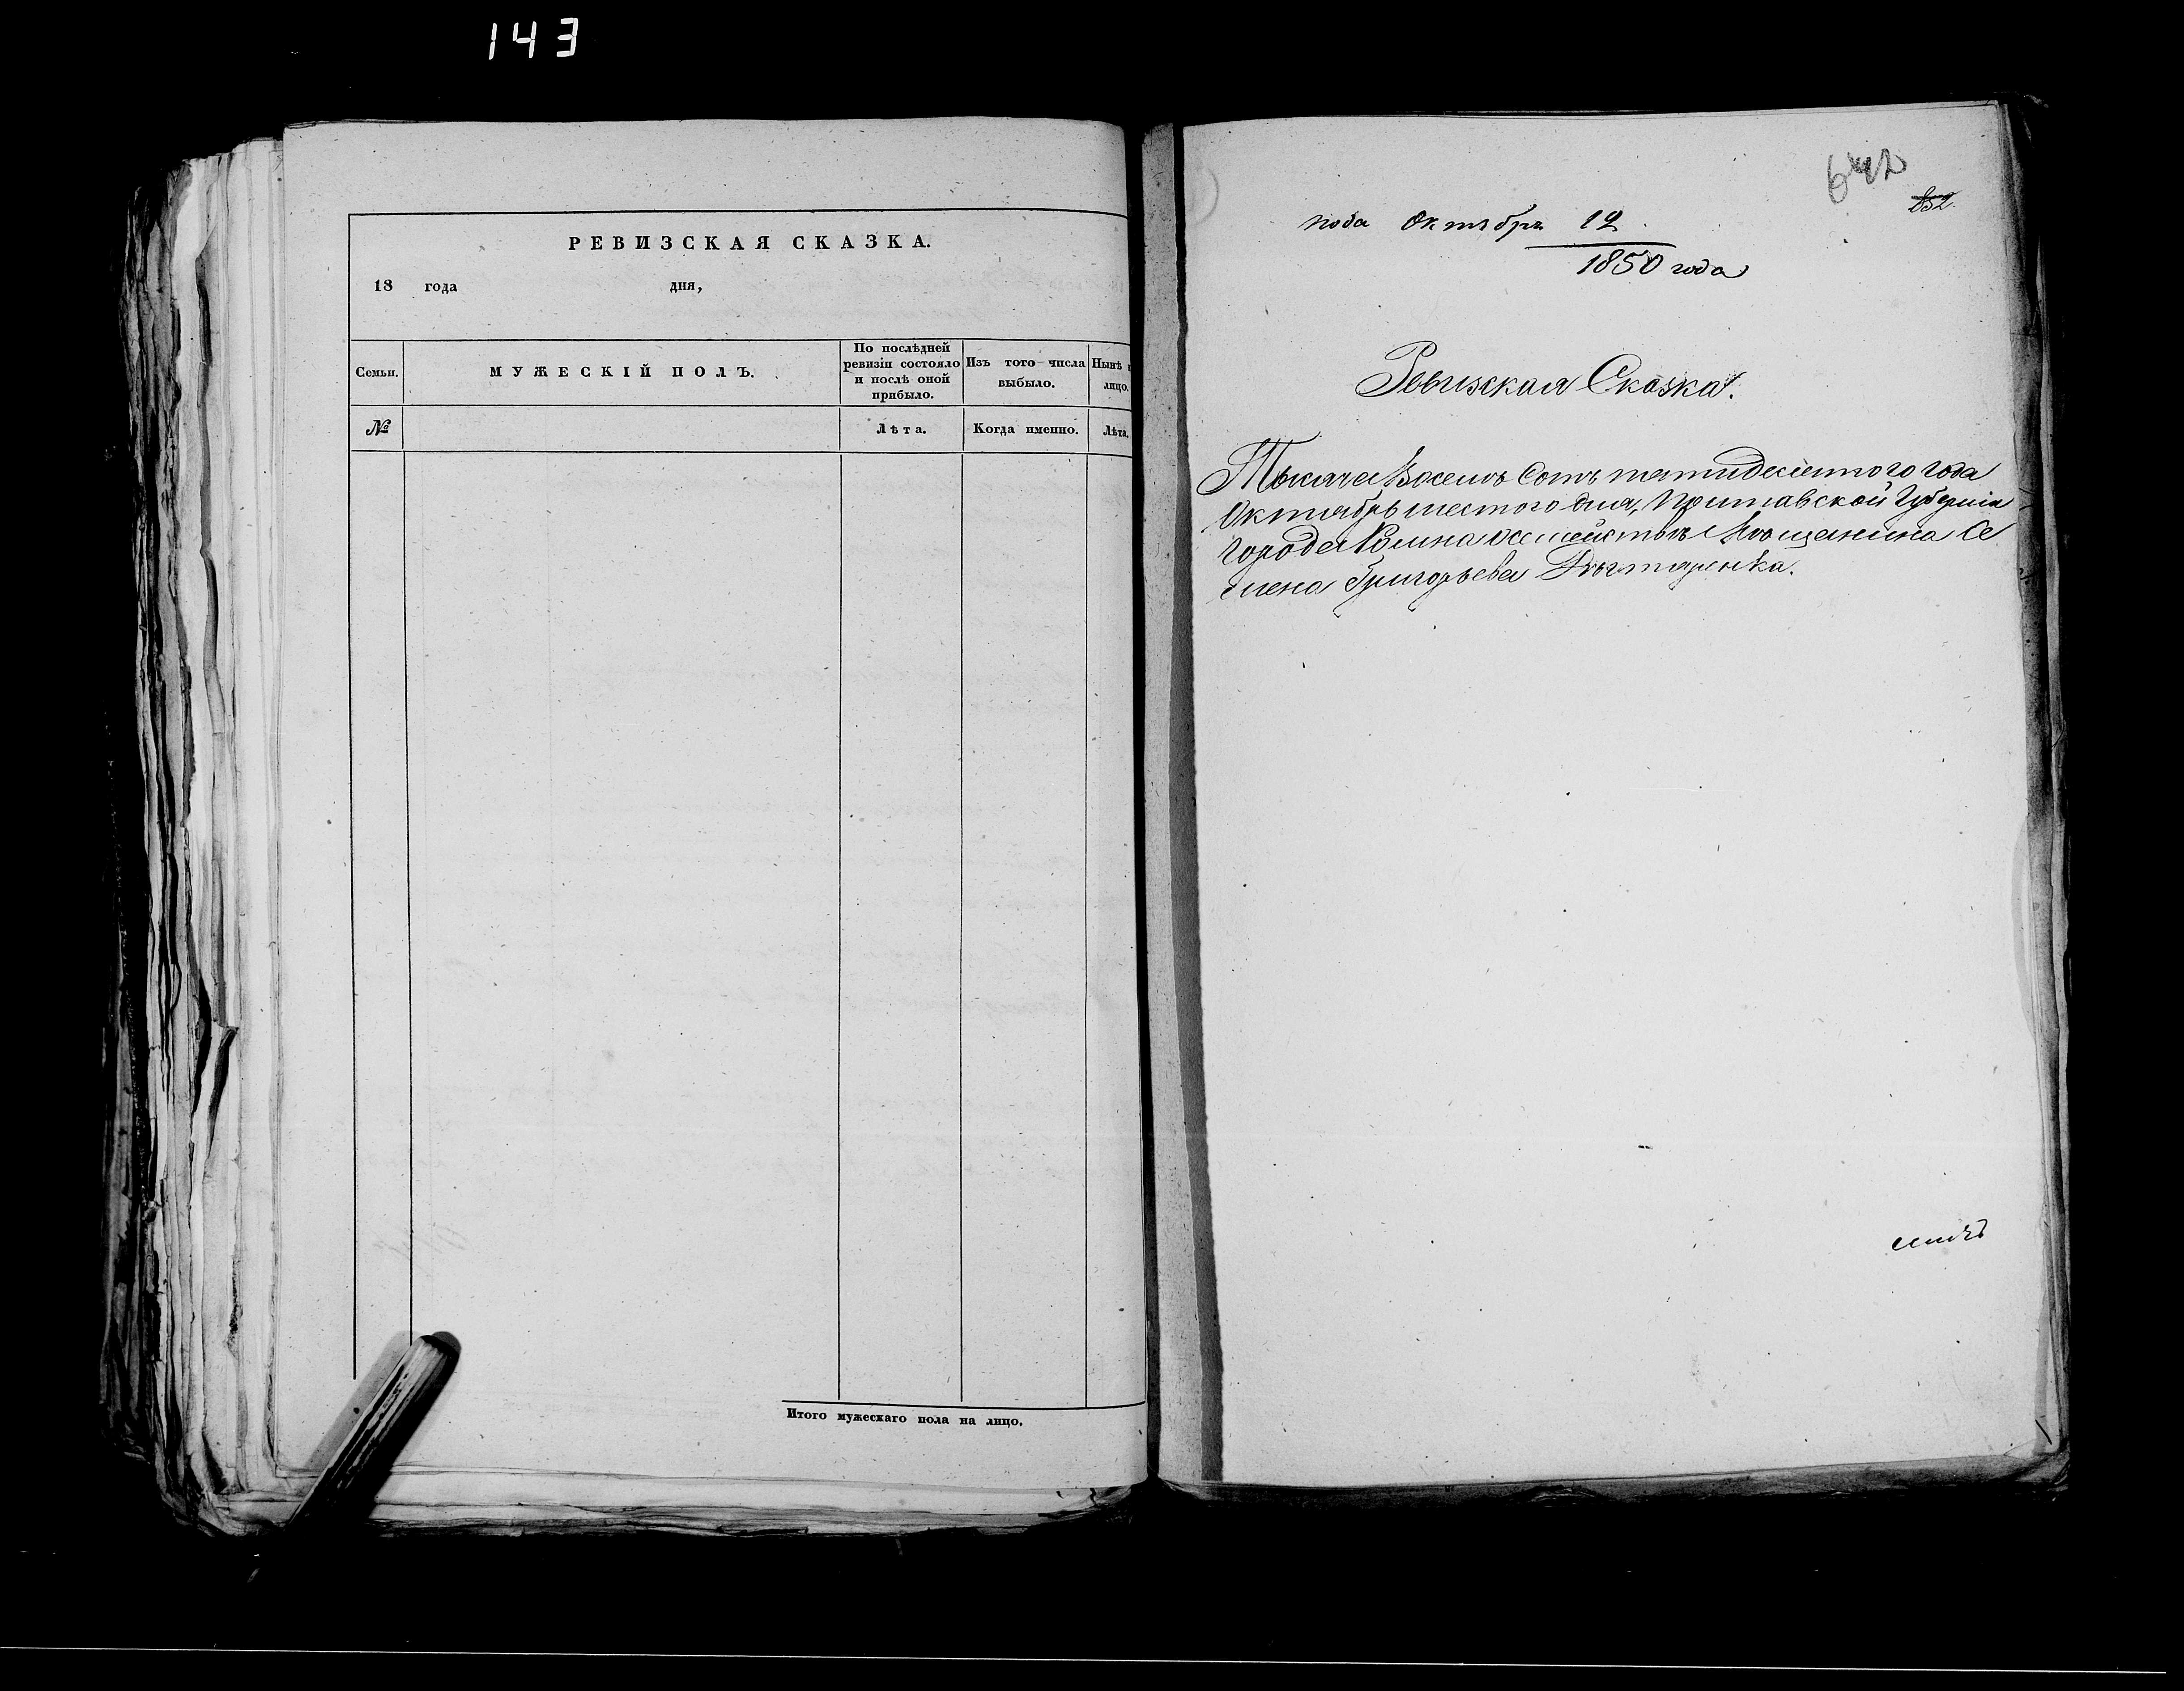 143
РЕВИЗСКАЯ СКАЗКА.
18 года дня,
Семьи.
МУЖЕСКІЙ ПОЛЪ.
По послѣдней
ревизіи состояло
и послѣ оной
прибыло.
Изъ того числа
выбыло.
Нынѣ
лицо.
№
Лѣта.
Когда именно.
Лѣта.
Итого мужескаго пола на лицо.
642
Октября 12
1850 года
Ревизская Сказка.
Тысяча Восемь Сотъ пятидесятого года
Октября шестого дня, Полтавской Губерніи
города Ромна о семействѣ Мѣщанина Се
мена Григорьева